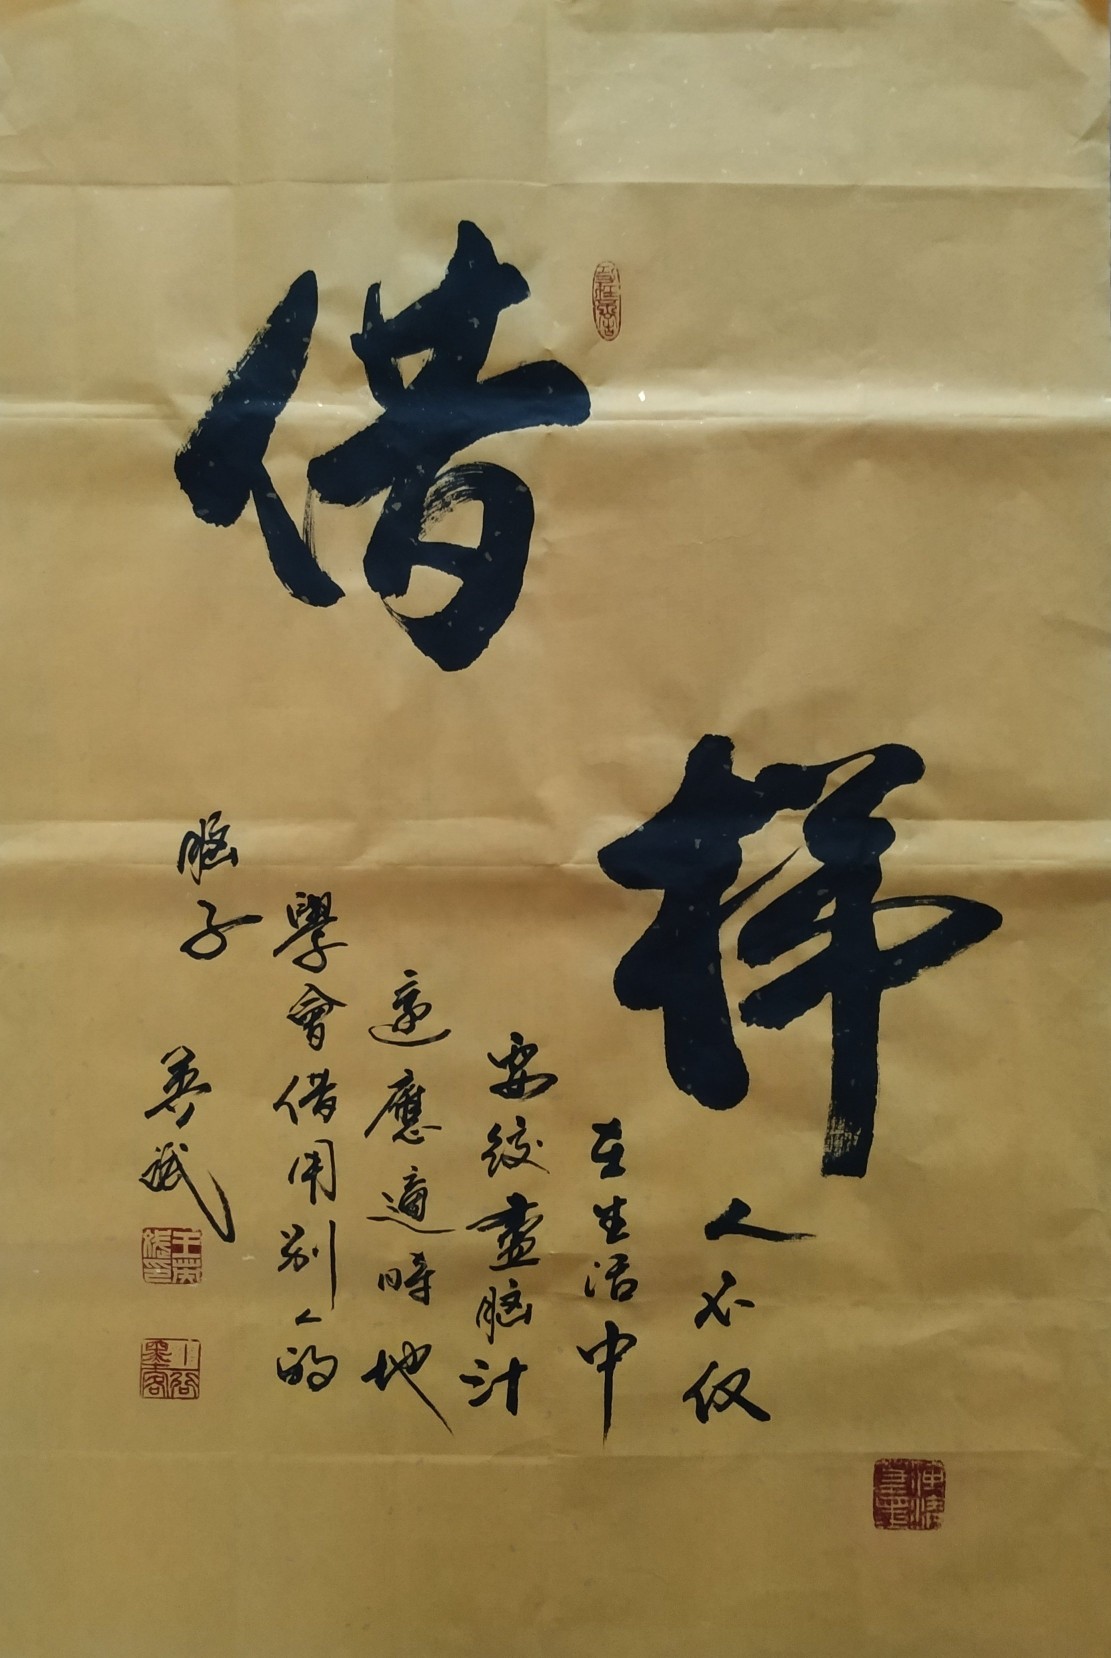 择
借
人不仅
在生活中
要绞盡脑汁
還應適時地
學會借用别人的
脑子
英斌